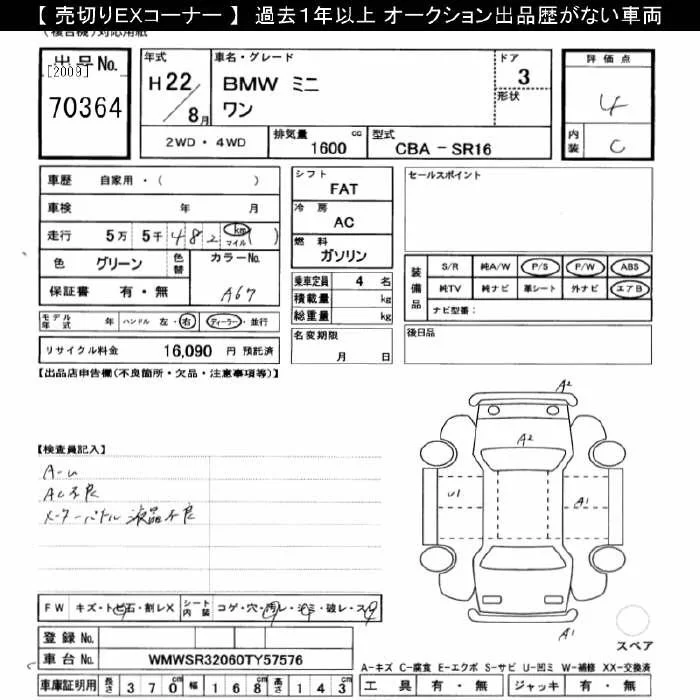 【 売切りEXコーナー 】 過去１年以上 オークション出品歴がない車両
出 品 No.
[2009]
70364
年式
H 22 / 8月
車名・グレード
BMW ミニ
ワン
ドア
3
形状
評 価 点
4
内装
C
2WD ・ 4WD
排気量
1600 cc
型式
CBA － SR16
車歴 自家用・( )
車検 年 月
走行 5万 5千 4 8 2 km マイル ( )
色 グリーン 色替
カラーNo.
A67
保証書 有・無
モデル年式 年 ハンドル 左・右 ディーラー・並行
リサイクル料金 16,090 円 預託済
シフト
FAT
冷 房
AC
燃 料
ガソリン
乗車定員 4 名
積載量 kg
総重量 kg
名変期限
月 日
セールスポイント
装備品
S/R 純A/W P/S P/W ABS
純TV 純ナビ 革シート 外ナビ エアB
ナビ型番：
後日品
【出品店申告欄(不良箇所・欠品・注意事項等)】
【検査員記入】
A-u
AC不良
メーターパネル 液晶不良
A2
A2
U1
A1
A1
スペア
FW キズ・トビ石・割レX シート内装 コゲ・穴・汚レ・シミ・破レ・スレ
登録 No.
車台 No. WMWSR32060TY57576
車庫証明用 長さ 370cm 幅 168cm 高さ 143cm
A－キズ C－腐食 E－エクボ S－サビ U－凹ミ W－補修 XX－交換済
工 具 有 ・ 無 ジャッキ 有 ・ 無